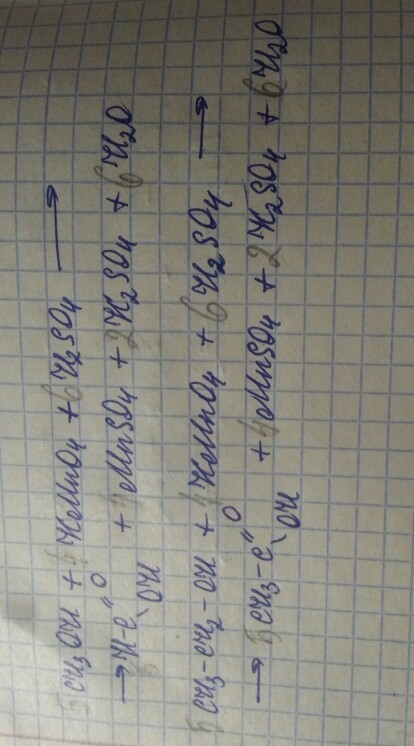 5CH₃OH + 4KMnO₄ + 6H₂SO₄ ⟶
O
→ 5H-C + 4MnSO₄ + 2K₂SO₄ + 6H₂O
OH
5CH₃-CH₂-OH + 4KMnO₄ + 6H₂SO₄ ⟶
O
→ 5CH₃-C + 4MnSO₄ + 2K₂SO₄ + 6H₂O
OH